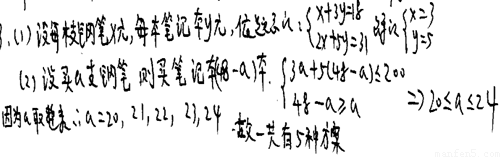 3.(1)设每枝钢笔x元,每本笔记本y元,依题意得:{x+3y=18 2x+5y=31 解得{x=3 y=5
(2)设买a支钢笔 则买笔记本(48-a)本. {3a+5(48-a)≤200 48-a≥a ⇒20≤a≤24
因为a取整数∴a=20,21,22,23,24 ∴一共有5种方案